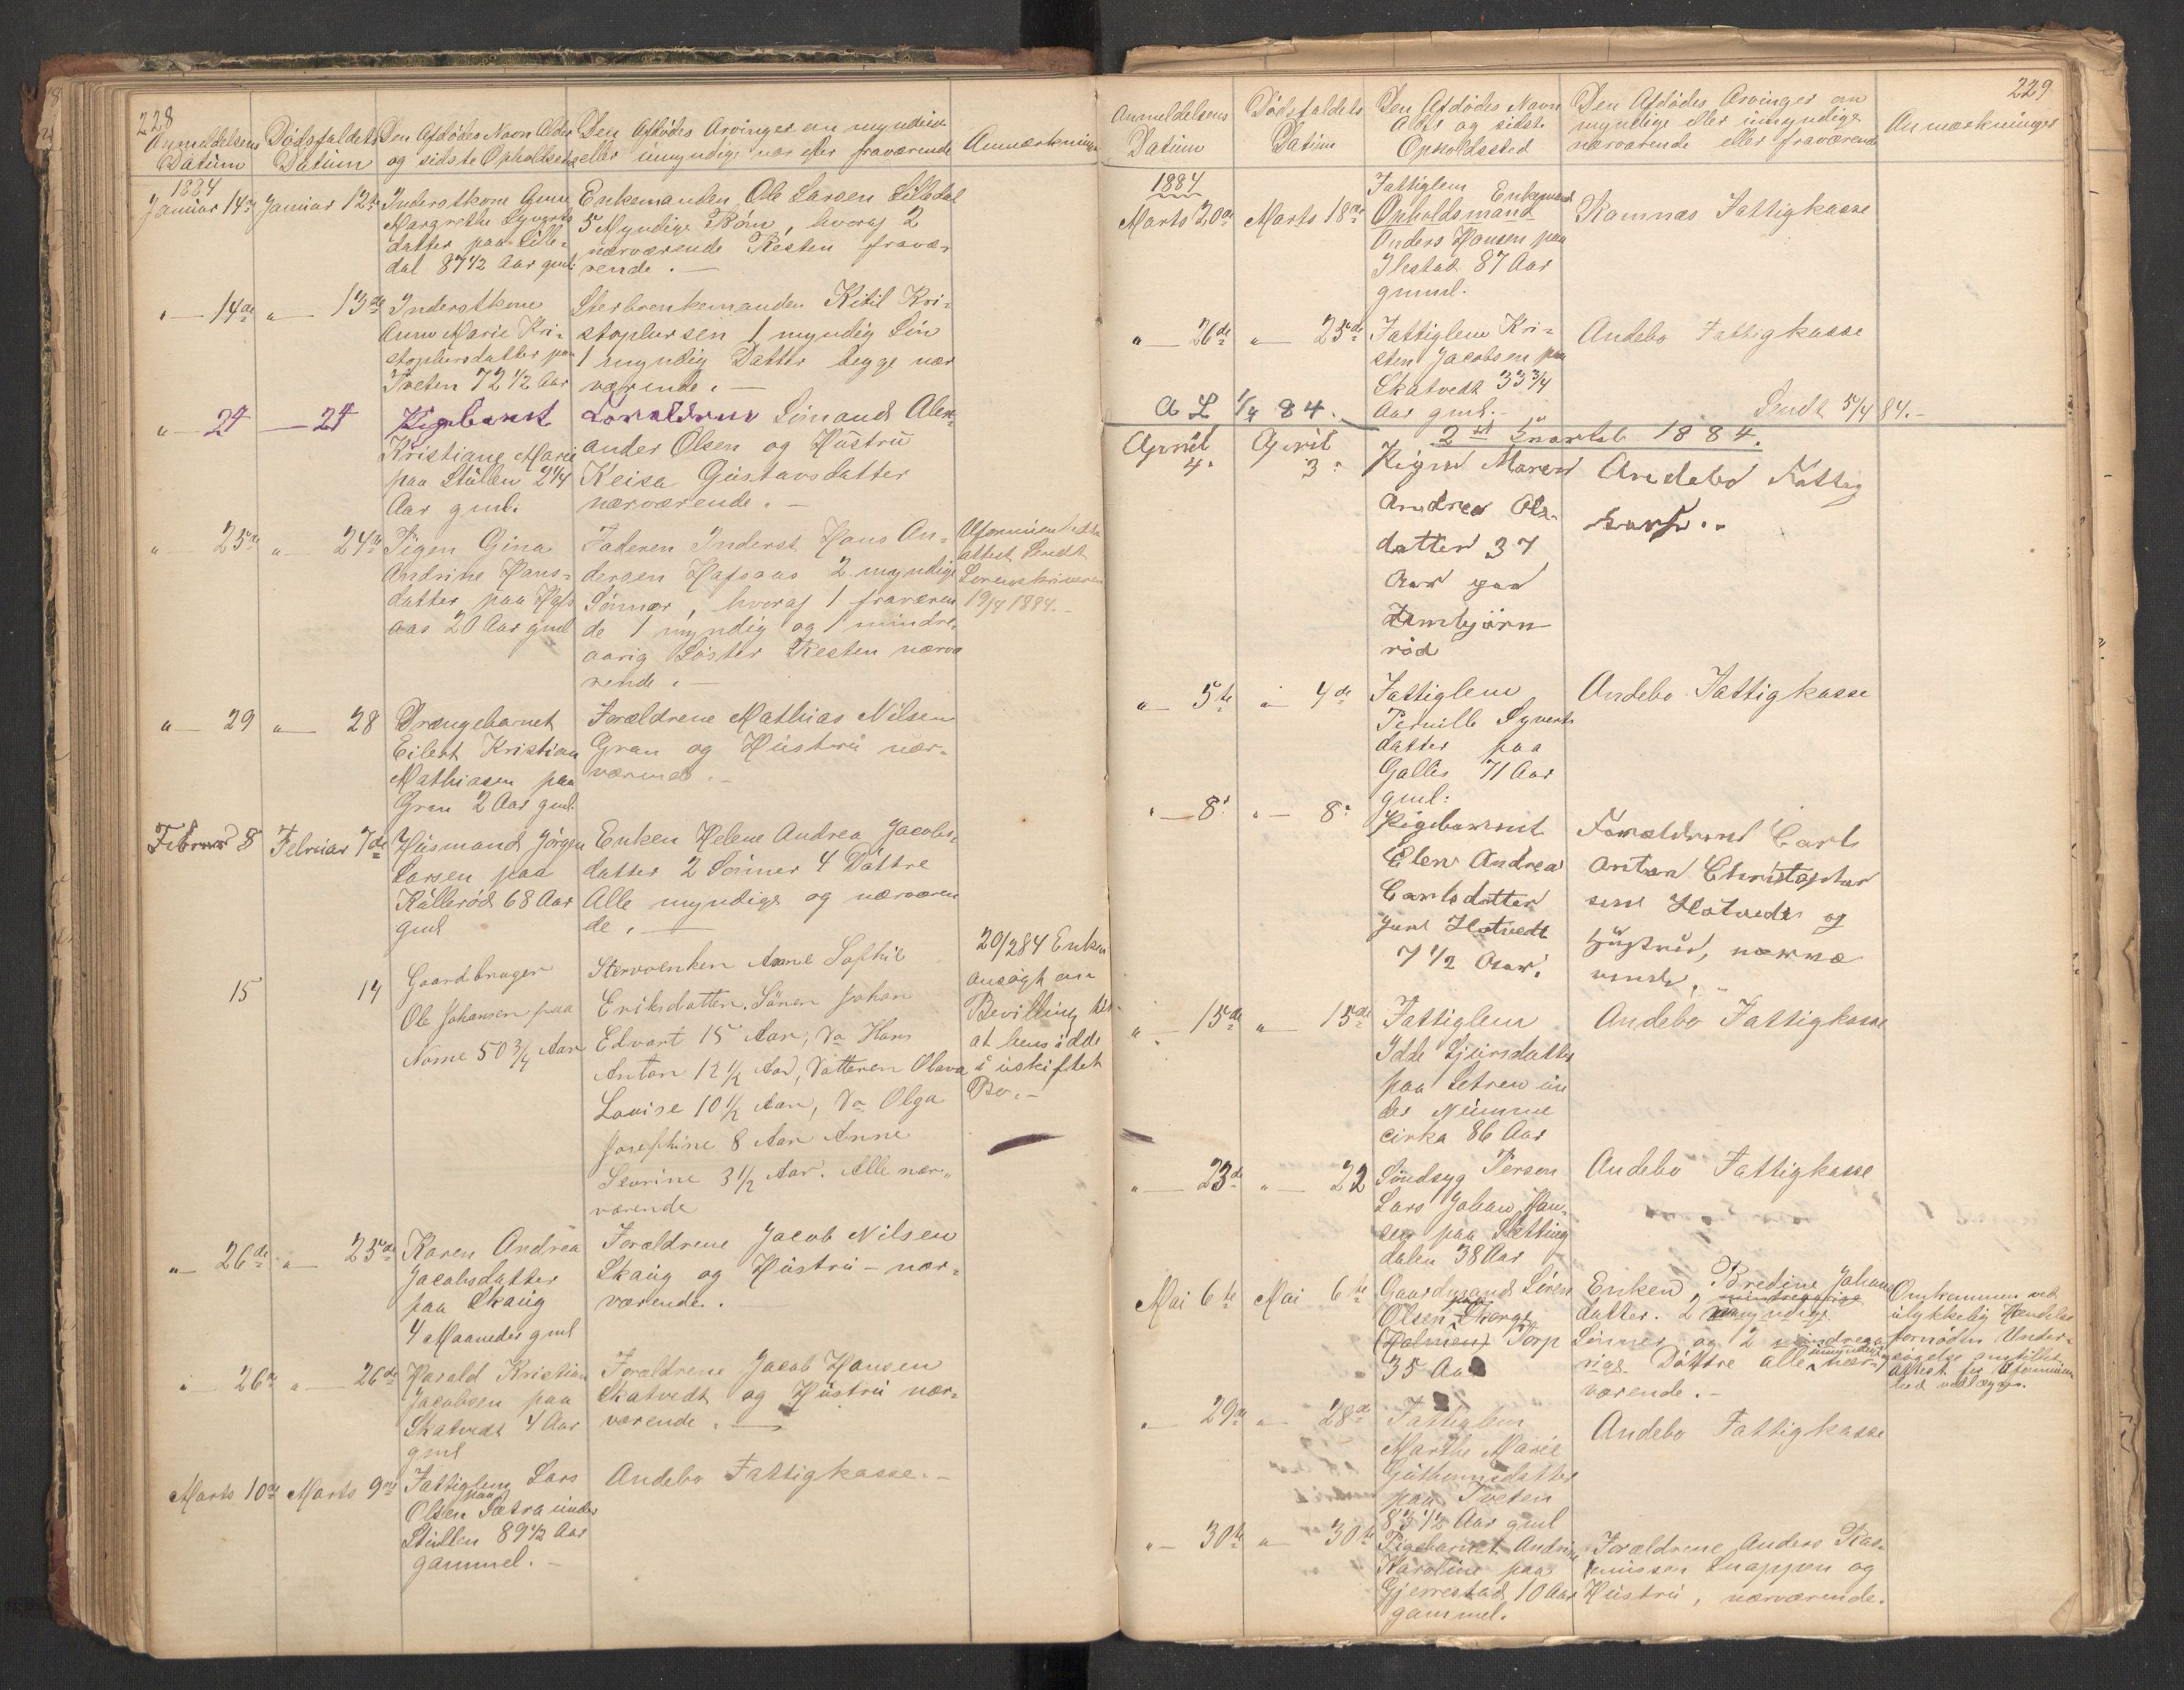 228
Anmeldelsens Datum
Dødsfaldets Datum
Den Afdødes Navn Alder og sidste Opholdsted
Den Afdødes Arvinger om myndige eller umyndige nær eller fraværende
Anmærkninger
1884
Januar 14de
Januar 12te
Inderstkone Anne
Margrethe Syverts
datter paa Lille-
dal 87 1/2 Aar gml:
Enkemanden Ole Larsen Lilledal
5 Myndige Börn, hvoraf 2
nærværende Resten fravæ-
rende. —
" — 14de
" — 13de
Inderstkone
Anne Marie Kri-
stophersdatter paa
Tveten 72 1/2 Aar
Sterbeenkemanden Kitil Kri-
stophersen 1 myndig Sön
1 myndig Datter begge nær
værende. —
" — 24
— 24
Pigebarnet
Kristiane Marie
paa Stullen 2 1/4
Aar gml.
Forældrene Sömand Alex-
ander Olsen og Hustru
Keisa Gustavsdatter
nærværende. —
" — 25de
" — 24de
Pigen Gina
Andrine Hans-
datter paa Hafs
aas 20 Aar gml
Faderen Inderst Hans An-
dersen Hafsaas 2 myndige
Sönner, hvoraf 1 fraværen
de 1 myndig og 1 mindre-
aarig Söster Resten nærvæ
rende. —
Uformuenheds
attest Sendt
Sorenskriveren
19/4 1884. —
" — 29
" — 28
Drængebarnet
Eilert Kristian
Mathiasen paa
Gran 2 Aar gml.
Forældrene Mathias Nilsen
Gran og Hustru nær-
værende. —
Februar 8
Februar 7de
Husmand Jörgen
Larsen paa
Kullerød 68 Aar
gml
Enken Helene Andrea Jacobs-
datter 2 Sönner 4 Döttre
Alle myndige og nærværen
de. —
15
14
Gaardbruger
Ole Johansen paa
Nome 50 3/4 Aar
Stervoenken Anne Sophie
Eriksdatter. Sönen Johan
Edvart 15 Aar, Do Hans
Anton 12 1/2 Aar, Datteren Olava
Louise 10 1/2 Aar, Do Olga
Josephine 8 Aar Anne
Sevrine 3 1/2 Aar. Alle nær-
værende
20/2 84 Enken
ansögt om
Bevilling til
at hensidde
i uskiftet
Bo. —
" — 26de
" — 25de
Karen Andrea
Jacobsdatter
paa Skaug
4 Maaneder gml
Forældrene Jacob Nilsen
Skaug og Hustru - nær-
værende.
" 26de
" — 26de
Harald Kristian
Jacobsen paa
Skatvedt 4 Aar
gml
Forældrene Jacob Hansen
Skatvedt og Hustru nær-
værende. —
Marts 10de
Marts 9de
Fattiglem Lars
Olsen paa Sætra under
Stullen 89 1/2 Aar
gammel. —
Andebo Fattigkasse. —
229
Anmeldelsens Datum
Dødsfaldets Datum
Den Afdødes Navn Alder og sidste Opholdssted
Den Afdødes Arvinger om myndige eller umyndige nærværende eller fraværende
Anmærkninger
1884
Marts 20de
Marts 18de
Fattiglem Enkemand
Opholdsmand
Anders Hansen paa
Ilestad 87 Aar
gmml.
Ramnæs Fattigkasse
" — 26de
" — 25de
Fattiglem Kri-
sten Jacobsen paa
Skatvedt 33 3/4
Aar gml. —
Andebo Fattigkasse
A L 1/4 84.
Sendt 5/4 84. —
2det Kvartal 1884.
April 4.
April 3.
Pigen Maren
Andrea Ols-
datter 37
Aar paa
Torbjørn
rød
Andebo Fattig
kasse. —
" — 5te
" — 4de
Fattiglem
Pernille Syverts
datter paa
Gallis 71 Aar
gml:
Andebo Fattigkasse
" — 8.
" — 8.
Pigebarnet
Elen Andrea
Carlsdatter
paa Hotvedt
7 1/2 Aar.
Forældrene Carl
Anton Christopher
sen Hotvedt og
Hustru, nærvæ
rende, —
" — 15de
" — 15de
Fattiglem
Idde Sjursdatter
paa Setren un
der Numme
cirka 86 Aar
Andebo Fattigkasse
" — 23de
" — 22
Sindsyg Person
Lars Johan Han-
sen paa Sletting
dalen 38 Aar
Andebo Fattigkasse
Mai 6te
Mai 6te
Gaardmand Sören
Olsen paa Skorge
(Holmen) Torp
35 Aar
Enken, Bredine Johans
datter. 2
Sönner og 2 mindreaa
rige Döttre alle umyndige nær-
værende. —
Omkommen ved
ulykkelig Hændelse
fornöden Under-
sögelse anstillet
attest for Uformuen
hed vedlægges.
" — 29de
" — 28de
Fattiglem
Marthe Marie
Guthormsdatter
paa Tveten
83 1/2 Aar gml
Andebo Fattigkasse
" — 30te
" — 30te
Pigebarnet Andrine
Karoline paa
Gjerrestad 10 Aar
gammel.
Forældrene Anders Ras-
mussen Snappen og
Hustru, nærværende.